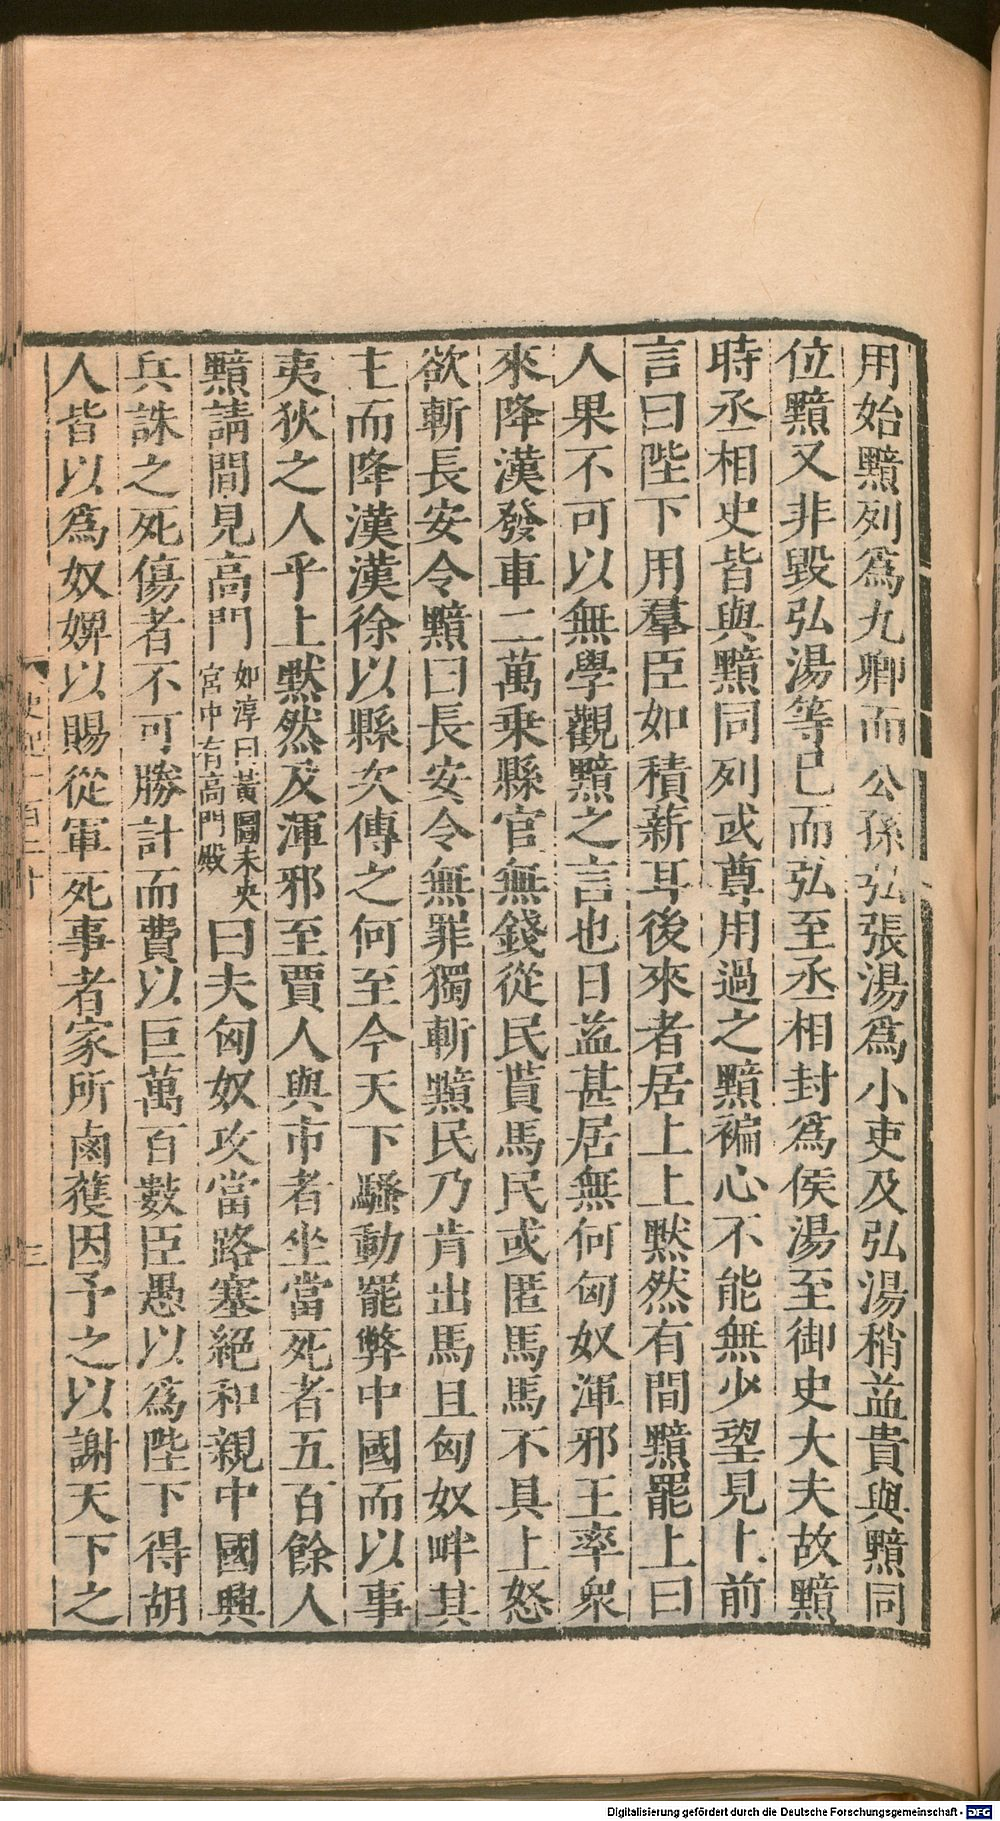 用始黯列爲九卿而公孫弘張湯爲小吏及弘湯稍益貴與黯同
位黯又非毀弘湯等已而弘至丞相封爲侯湯至御史大夫故黯
時丞相史皆與黯同列或尊用過之黯褊心不能無少望見上前
言曰陛下用羣臣如積薪耳後來者居上上默然有間黯罷上曰
人果不可以無學觀黯之言也日益甚居無何匈奴渾邪王率衆
來降漢發車二萬乘縣官無錢從民貰馬民或匿馬馬不具上怒
欲斬長安令黯曰長安令無罪獨斬黯民乃肯出馬且匈奴畔其
主而降漢漢徐以縣次傳之何至令天下騷動罷弊中國而以事
夷狄之人乎上默然及渾邪至賈人與市者坐當死者五百餘人
黯請間見高門如淳曰黃圖未央宮中有高門殿曰夫匈奴攻當路塞絕和親中國興
兵誅之死傷者不可勝計而費以巨萬百數臣愚以爲陛下得胡
人皆以爲奴婢以賜從軍死事者家所鹵獲因予之以謝天下之
史記一百二十
三
Digitalisierung gefördert durch die Deutsche Forschungsgemeinschaft - DFG